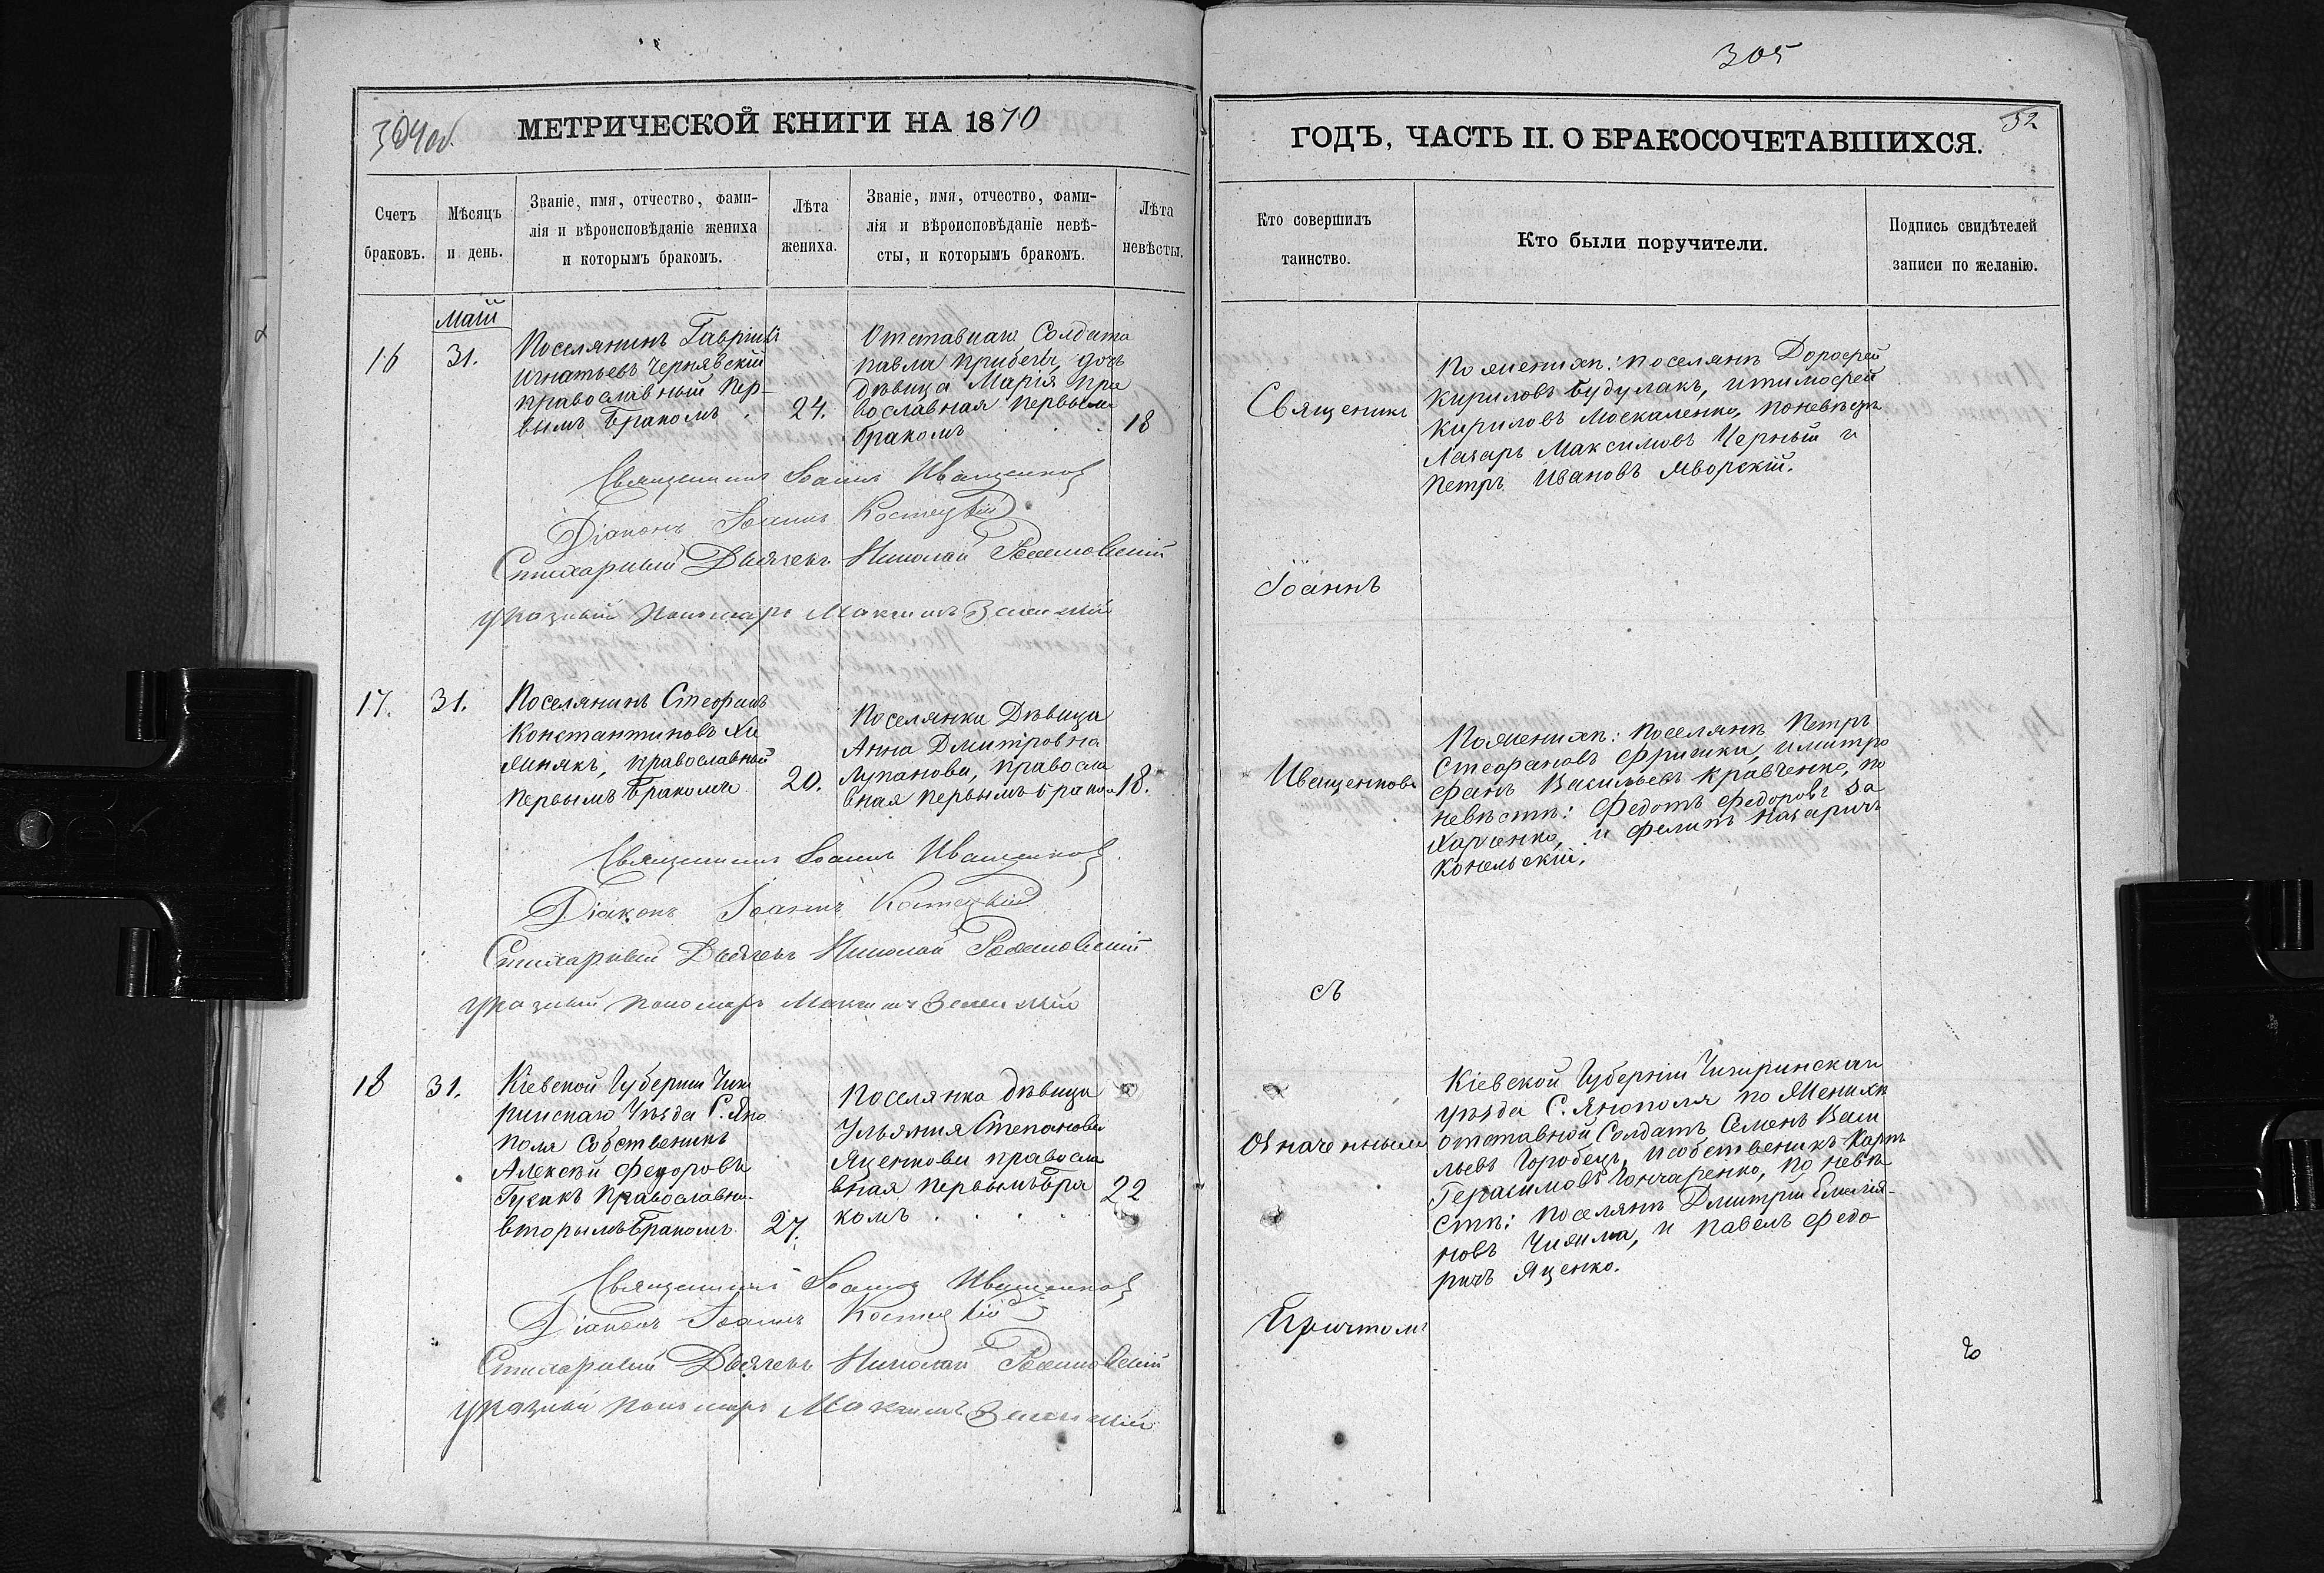 305
304 об.
МЕТРИЧЕСКОЙ КНИГИ НА 1870
Счетъ браковъ.
Мѣсяцъ и день.
Званіе, имя, отчество, фами-
лія и вѣроисповѣданіе жениха
и которымъ бракомъ.
Лѣта жениха.
Званіе, имя, отчество, фами-
лія и вѣроисповѣданіе невѣ-
сты, и которымъ бракомъ.
Лѣта невѣсты.
Май
16
31.
Поселянинъ Гавріилъ
Игнатьевъ Чернявскій
православный пер-
вымъ бракомъ.
24.
Отставнаго Солдата
Павла дочь
Дѣвица Марія пра
вославная первымъ
бракомъ
18
Священникъ Іоаннъ Иващенковъ
Діаконъ Іоаннъ Костецкій
Стихарный Дьячекъ Николай
указный Пономарь Максимъ
17.
31.
Поселянинъ Стефанъ
Константиновъ Хи
жинякъ, православный
первымъ бракомъ
20.
Поселянка Дѣвица
Анна Дмитровна
Лупанова, правосла
вная первымъ браком
18.
Священникъ Іоаннъ Иващенковъ
Діаконъ Іоаннъ Костецкій
Стихарный Дьячекъ Николай
указный пономарь Максимъ
18
31.
Кіевской Губерніи Чиги
ринскаго Уѣзда С. Яно
поля Собственикъ
Алексѣй Федоровъ
Гусакъ Православны
вторымъ бракомъ
27.
Поселянка дѣвица
Ульянія Степанова
Яценкова правосла
вная первымъ бра
комъ
22
Священникъ Іоаннъ Иващенковъ
Діаконъ Іоаннъ Костецкій
Стихарный Дьячекъ Николай
указный пономарь Максимъ
52
ГОДЪ, ЧАСТЬ II. О БРАКОСОЧЕТАВШИХСЯ.
Кто совершилъ
таинство.
Кто были поручители.
Подпись свидѣтелей
записи по желанію.
Священикъ
Іоаннъ
Иващенковъ
съ
Означеннымъ
Причтомъ
По женихѣ: поселяне Дорофей
Кириловъ Будулакъ, итимофей
Кириловъ Москаленко, поневѣстѣ
Лазарь Максимовъ Черный и
Петръ Ивановъ Яворскій.
Пожених: поселяне Петръ
Стефановъ имитро
фанъ Васильевъ Кравченко, по
невѣстѣ: Федотъ Федоровъ За
харченко, и Филипъ Назаричъ
Конельскій.
Кіевской Губерніи Чигиринскаго
уѣзда С. Янополя по Женихѣ
отставной Солдатъ Семенъ Васи
льевъ Горобецъ, исобственикъ Карпъ
Герасимовъ Гончаренко, по невѣ
стѣ: поселяне Дмитрій
новъ и Павелъ Федо
ричъ Яценко.